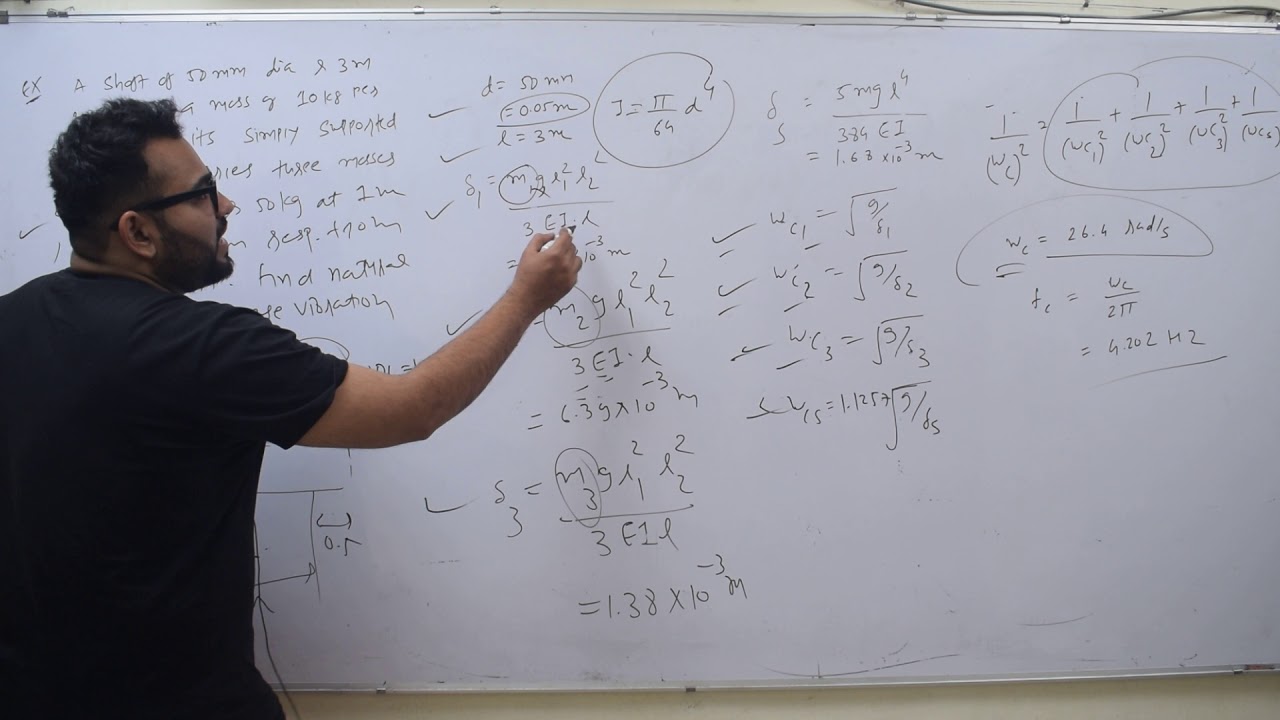 Ex A shaft of 50 mm dia & 3m
mass of 10 kg per
its simply supported
three masses
50 kg at 1m
resp. from
find natural
vibration
0.5
d = 50 mm
= 0.05 m
l = 3 m
I = π/64 d⁴
δ₁ = m₁ g l₁² l₂² / 3 EI · l
10⁻³ m
m₂ g l₁² l₂² / 3 EI · l
= 6.39 × 10⁻³ m
δ₃ = m₃ g l₁² l₂² / 3 EI l
= 1.38 × 10⁻³ m
δs = 5 m g l⁴ / 384 EI
= 1.68 × 10⁻³ m
ωc₁ = √g/δ₁
ωc₂ = √g/δ₂
ωc₃ = √g/δ₃
ωcs = 1.1257 √g/δs
1/(ωc)² = 1/(ωc₁)² + 1/(ωc₂)² + 1/(ωc₃)² + 1/(ωcs)
ωc = 26.4 rad/s
fc = ωc / 2π
= 4.202 Hz